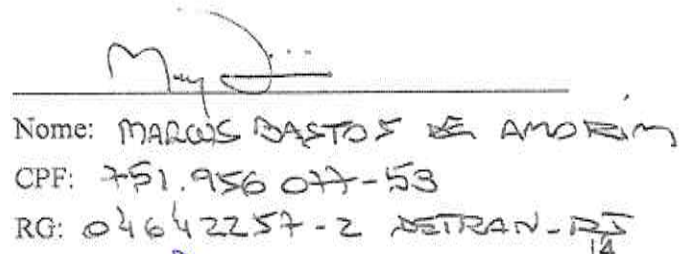 Nome: MARCOS BASTOS DE AMORIM
CPF: 751.956 077-53
RG: 04642257-2 DETRAN-RJ
14